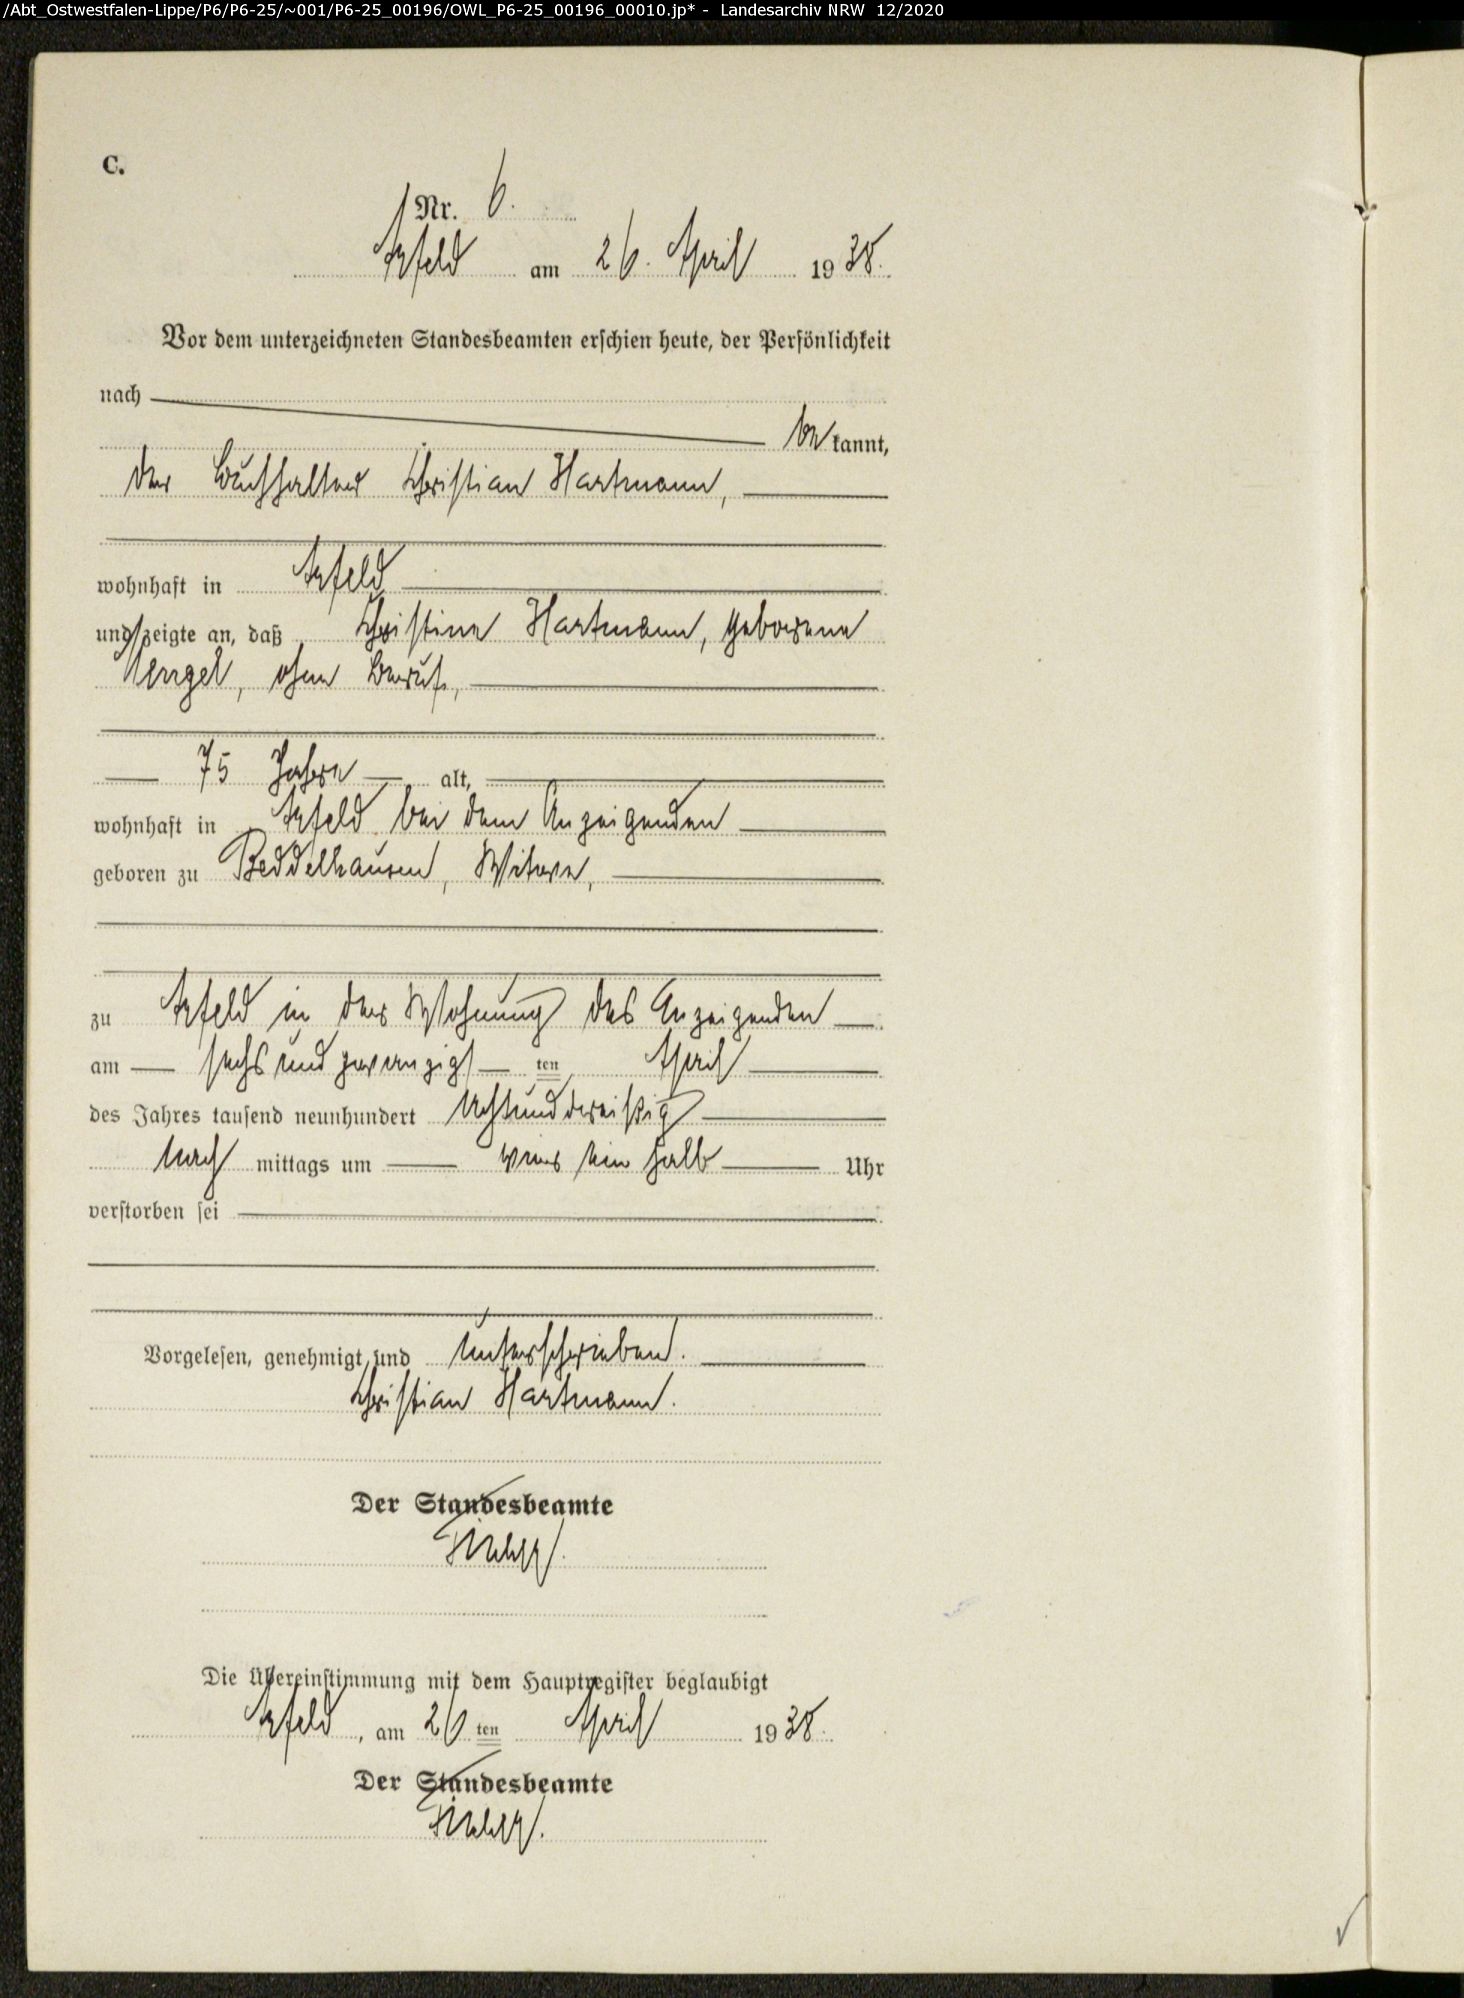 /Abt_Ostwestfalen-Lippe/P6/P6-25/~001/P6-25_00196/OWL_P6-25_00196_00010.jp* - Landesarchiv NRW 12/2020
C.
Nr. 6.
Arfeld am 26. April 1938.
Vor dem unterzeichneten Standesbeamten erschien heute, der Persönlichkeit
nach
be kannt,
der Buchhalter Christian Hartmann,
wohnhaft in Arfeld
und zeigte an, daß Christine Hartmann, geborene
Mengel, ohne Beruf,
75 Jahre alt,
wohnhaft in Arfeld bei dem Anzeigenden
geboren zu Beddelhausen, Witwe,
zu Arfeld in der Wohnung des Anzeigenden
am sechs und zwanzigsten April
des Jahres tausend neunhundert achtunddreißig
nach mittags um ein halb Uhr
verstorben sei
Vorgelesen, genehmigt und unterschrieben.
Christian Hartmann.
Der Standesbeamte
Die Übereinstimmung mit dem Hauptregister beglaubigt
Arfeld, am 26 ten April 1938.
Der Standesbeamte